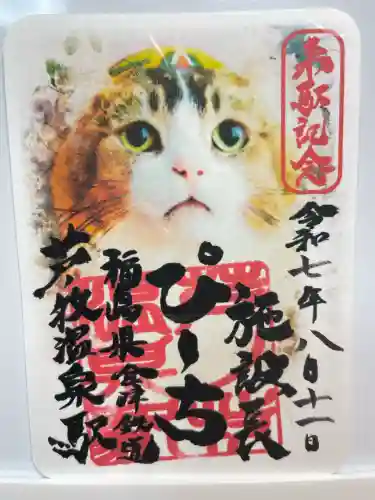 来駅記念
令和七年八月十一日
施設長
ぴーち
福島県会津鉄道
芦ノ牧温泉駅